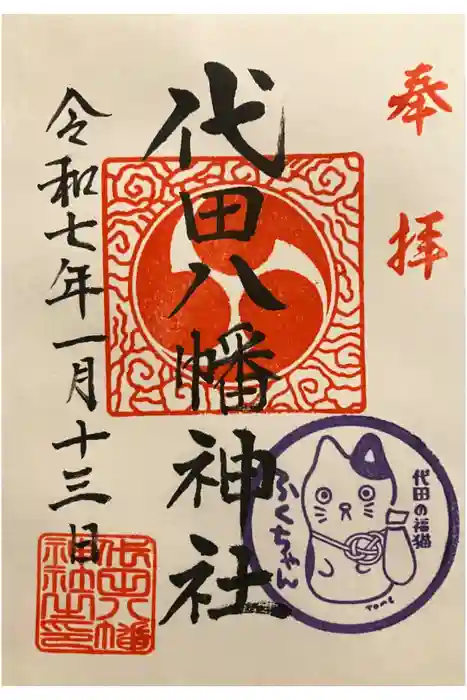 奉拝
代田八幡神社
令和七年一月十三日
代田八幡
神社之印
代田の福猫
ふくちゃん
TOMO